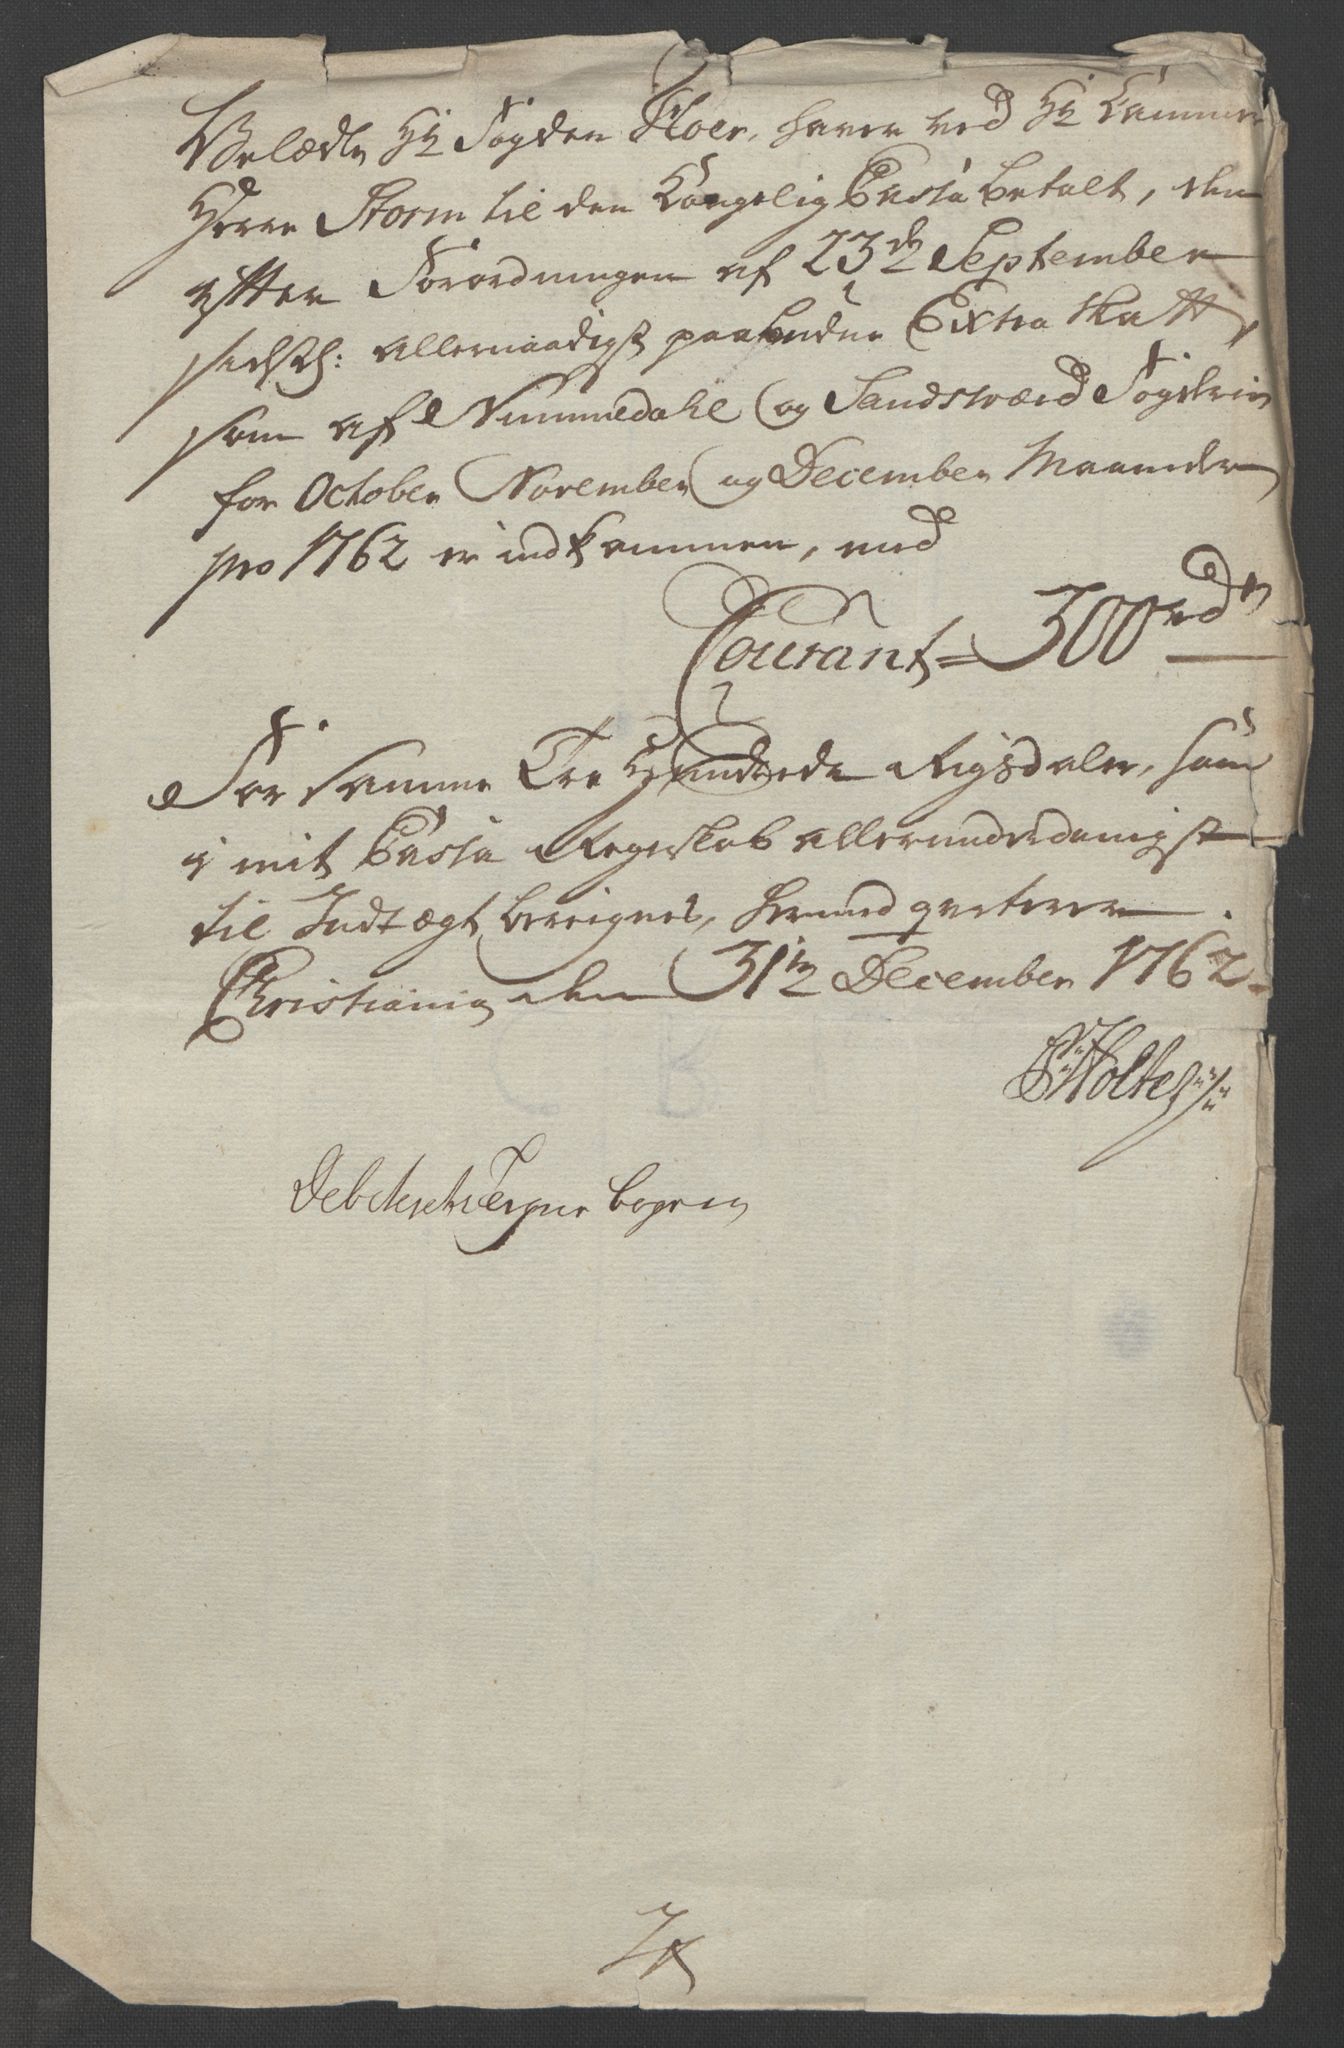 Velædle Hr Fogden Stoer, haver ved Hr Cammer
Herre Storm til den Kongelig Cassa betalt, den
efter Forordningen af 23de September
sidstl: allernaadigst paabudne Extra Skatt,
som af Nummedahl og Sandsværd Fogderie
for October November og December Maaneder
pro 1762 er indkommen, med
Courant = 300rdr
For samme Tre Hundrede Rigsdaler, som
i mit Cassa Regnskab allerunderdanigst
til Indtægt bereignes, hermed qviterer.
Christiania den 31te December 1762.
Holter